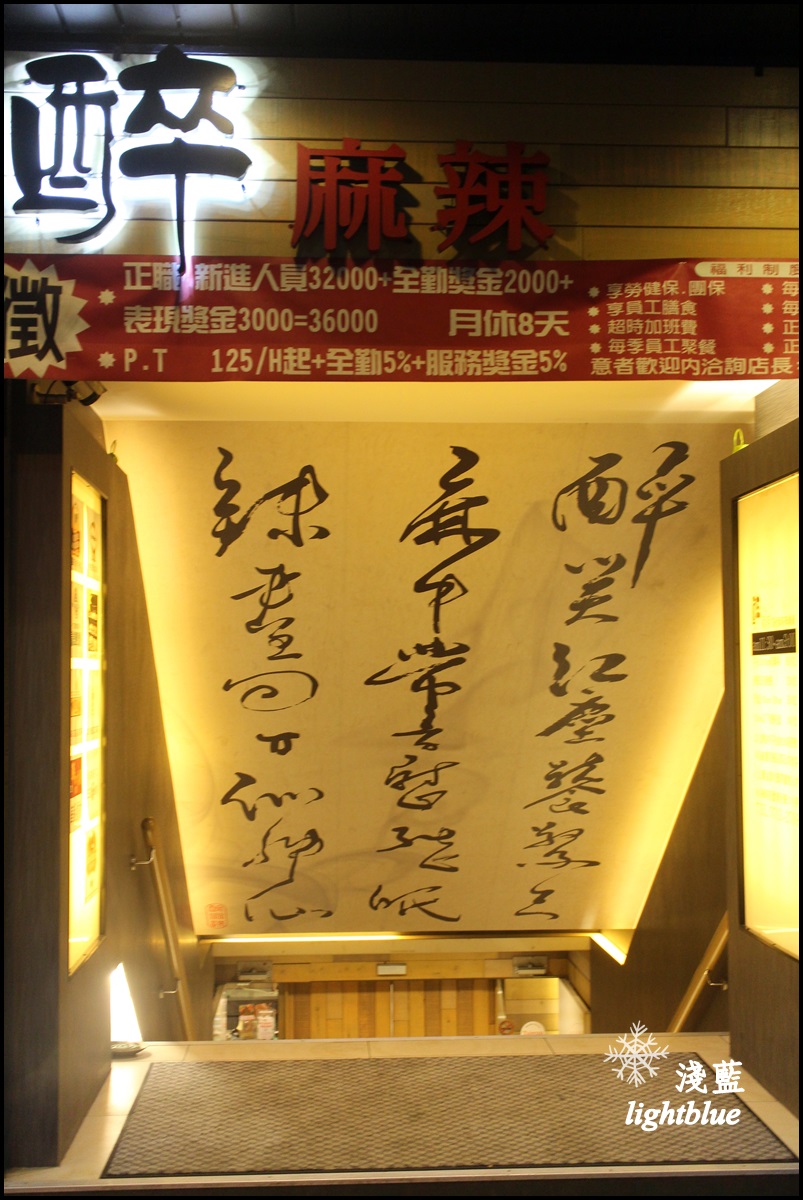 醉
麻辣
徵
正職 新進人員32000+全勤獎金2000+
表現獎金3000=36000 月休8天
P.T 125/H起+全勤5%+服務獎金5%
福利制度
享勞健保.團保
享員工膳食
超時加班費
每季員工聚餐
意者歡迎內洽詢店長
醉笑紅塵饕
麻中帶香慰
辣盡回甘似神仙
淺藍
lightblue